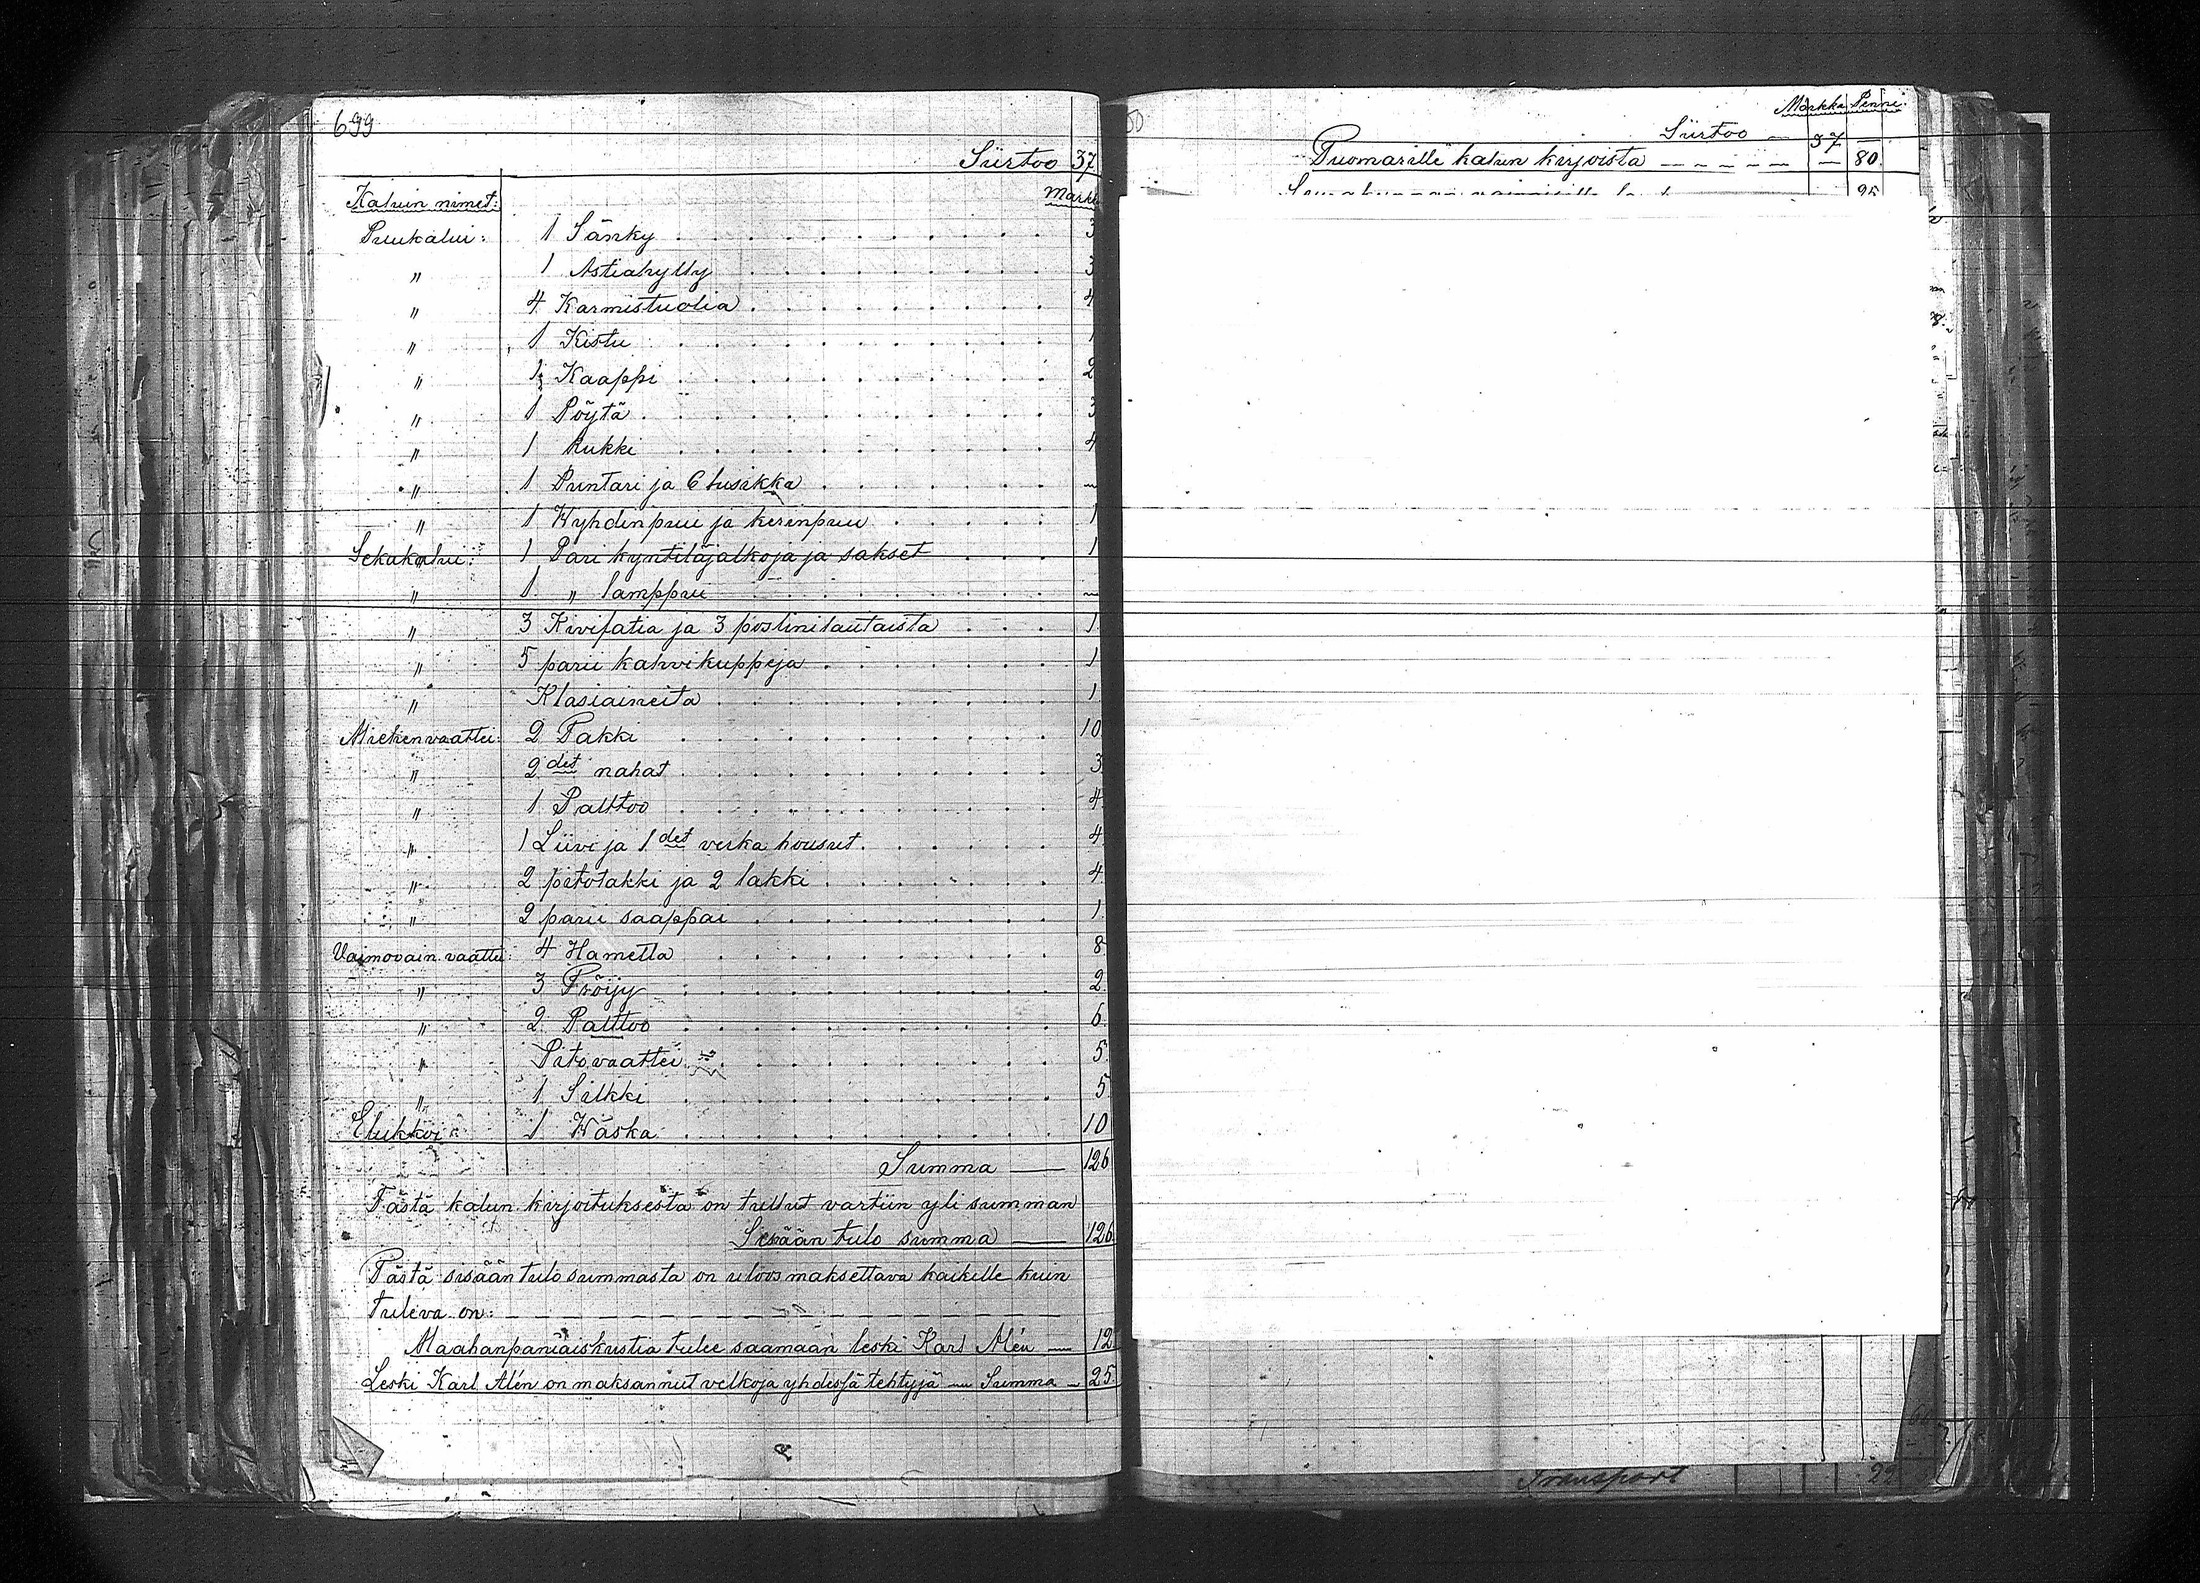 699
Siirtoo 37
Kaluin nimet: Markk
Puukalui: 1 Sänky . . . 3
" 1 Astiahylly . . . 3
" 4 Karmistuolia . . . 4
" 1 Kistu . . . 1
" 1 Kaappi . . . 2
" 1 Pöytä . . . 3
" 1 Rukki . . . 4
" 1 Puntari ja 6 lusikka . . . –
" 1 Wyhdinpuu ja kerinpuu . . . 1
Sekakalui: 1 Pari kyntiläjalkoja ja sakset . . . 1
" 1 " lamppuu . . . –
" 3 Kivifatia ja 3 postinilautaista . . . 1
" 5 parii kahvikuppeja . . . 1
" Klasiaineita . . . 1
Miekenvaattei: 2 Takki . . . 10
" 2 det nahat . . . 3
" 1 Palttoo . . . 4
" 1 Liivi ja 1 det verka housut . . . 4
" 2 pitotakki ja 2 lakki . . . 4
" 2 parii saappai . . . 1
Vaimovain vaattei: 4 Hametta . . . 8
" 3 Tröijy . . . 2
" 2 Palttoo . . . 6
" Pitovaattei . . . 5
" 1 Silkki . . . 5
Elukkoi: 1 Wäska . . . 10
Summa — 126
Tästä kalun kirjoituksesta on tullut vartiin yli summan
Sisään tulo summa — 126
Tästä sisään tulo summasta on uloos maksettava kaikille kuin
tuleva on: – – – – –
Maahanpaniaiskustia tulee saamaan leski Karl Alén — 12
Leski Karl Alén on maksannut velkoja yhdissä tehtyjä — Summa — 25
Markka Penni
Siirtoo — 37 –
Tuomarille kalun kirjoista – – – – – — 80
Transport